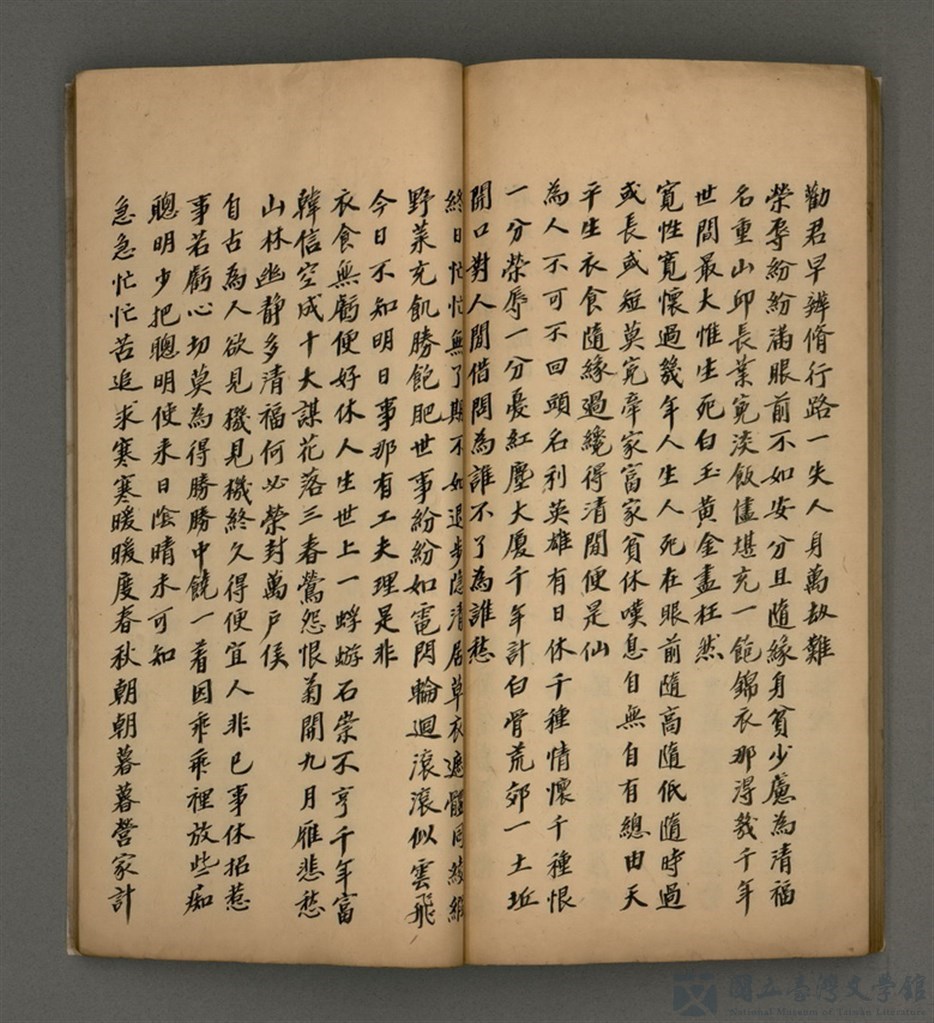 勸君早辦脩行路一失人身萬劫難
榮辱紛紛滿眼前不如安分且隨緣身貧少慮為清福
名重山邱長業寃淡飯儘堪充一飽錦衣那得幾千年
世間最大惟生死白玉黃金盡枉然
寬性寬懷過幾年人生人死在眼前隨高隨低隨時過
或長或短莫寃牽家富家貧休嘆息自無自有總由天
平生衣食隨緣過纔得清閒便是仙
為人不可不回頭名利英雄有日休千種情懷千種恨
一分榮辱一分憂紅塵大廈千年計白骨荒郊一土坵
開口對人閒借問為誰不了為誰愁
終日忙忙無了期不如退步隱清居草衣遮體同綾緞
野菜充飢勝飽肥世事紛紛如電閃輪迴滾滾似雲飛
今日不知明日事那有工夫理是非
衣食無虧便好休人生世上一蜉蝣石崇不亨千年富
韓信空成十大謀花落三春鶯怨恨菊開九月雁悲愁
山林幽靜多清福何必榮封萬戶侯
自古為人欲見機見機終久得便宜人非已事休招惹
事若虧心切莫為得勝勝中饒一着因乖乖裡放些痴
聰明少把聰明使來日陰晴未可知
急急忙忙苦追求寒寒暖暖度春秋朝朝暮暮營家計
國立臺灣文學館
National Museum of Taiwan Literature